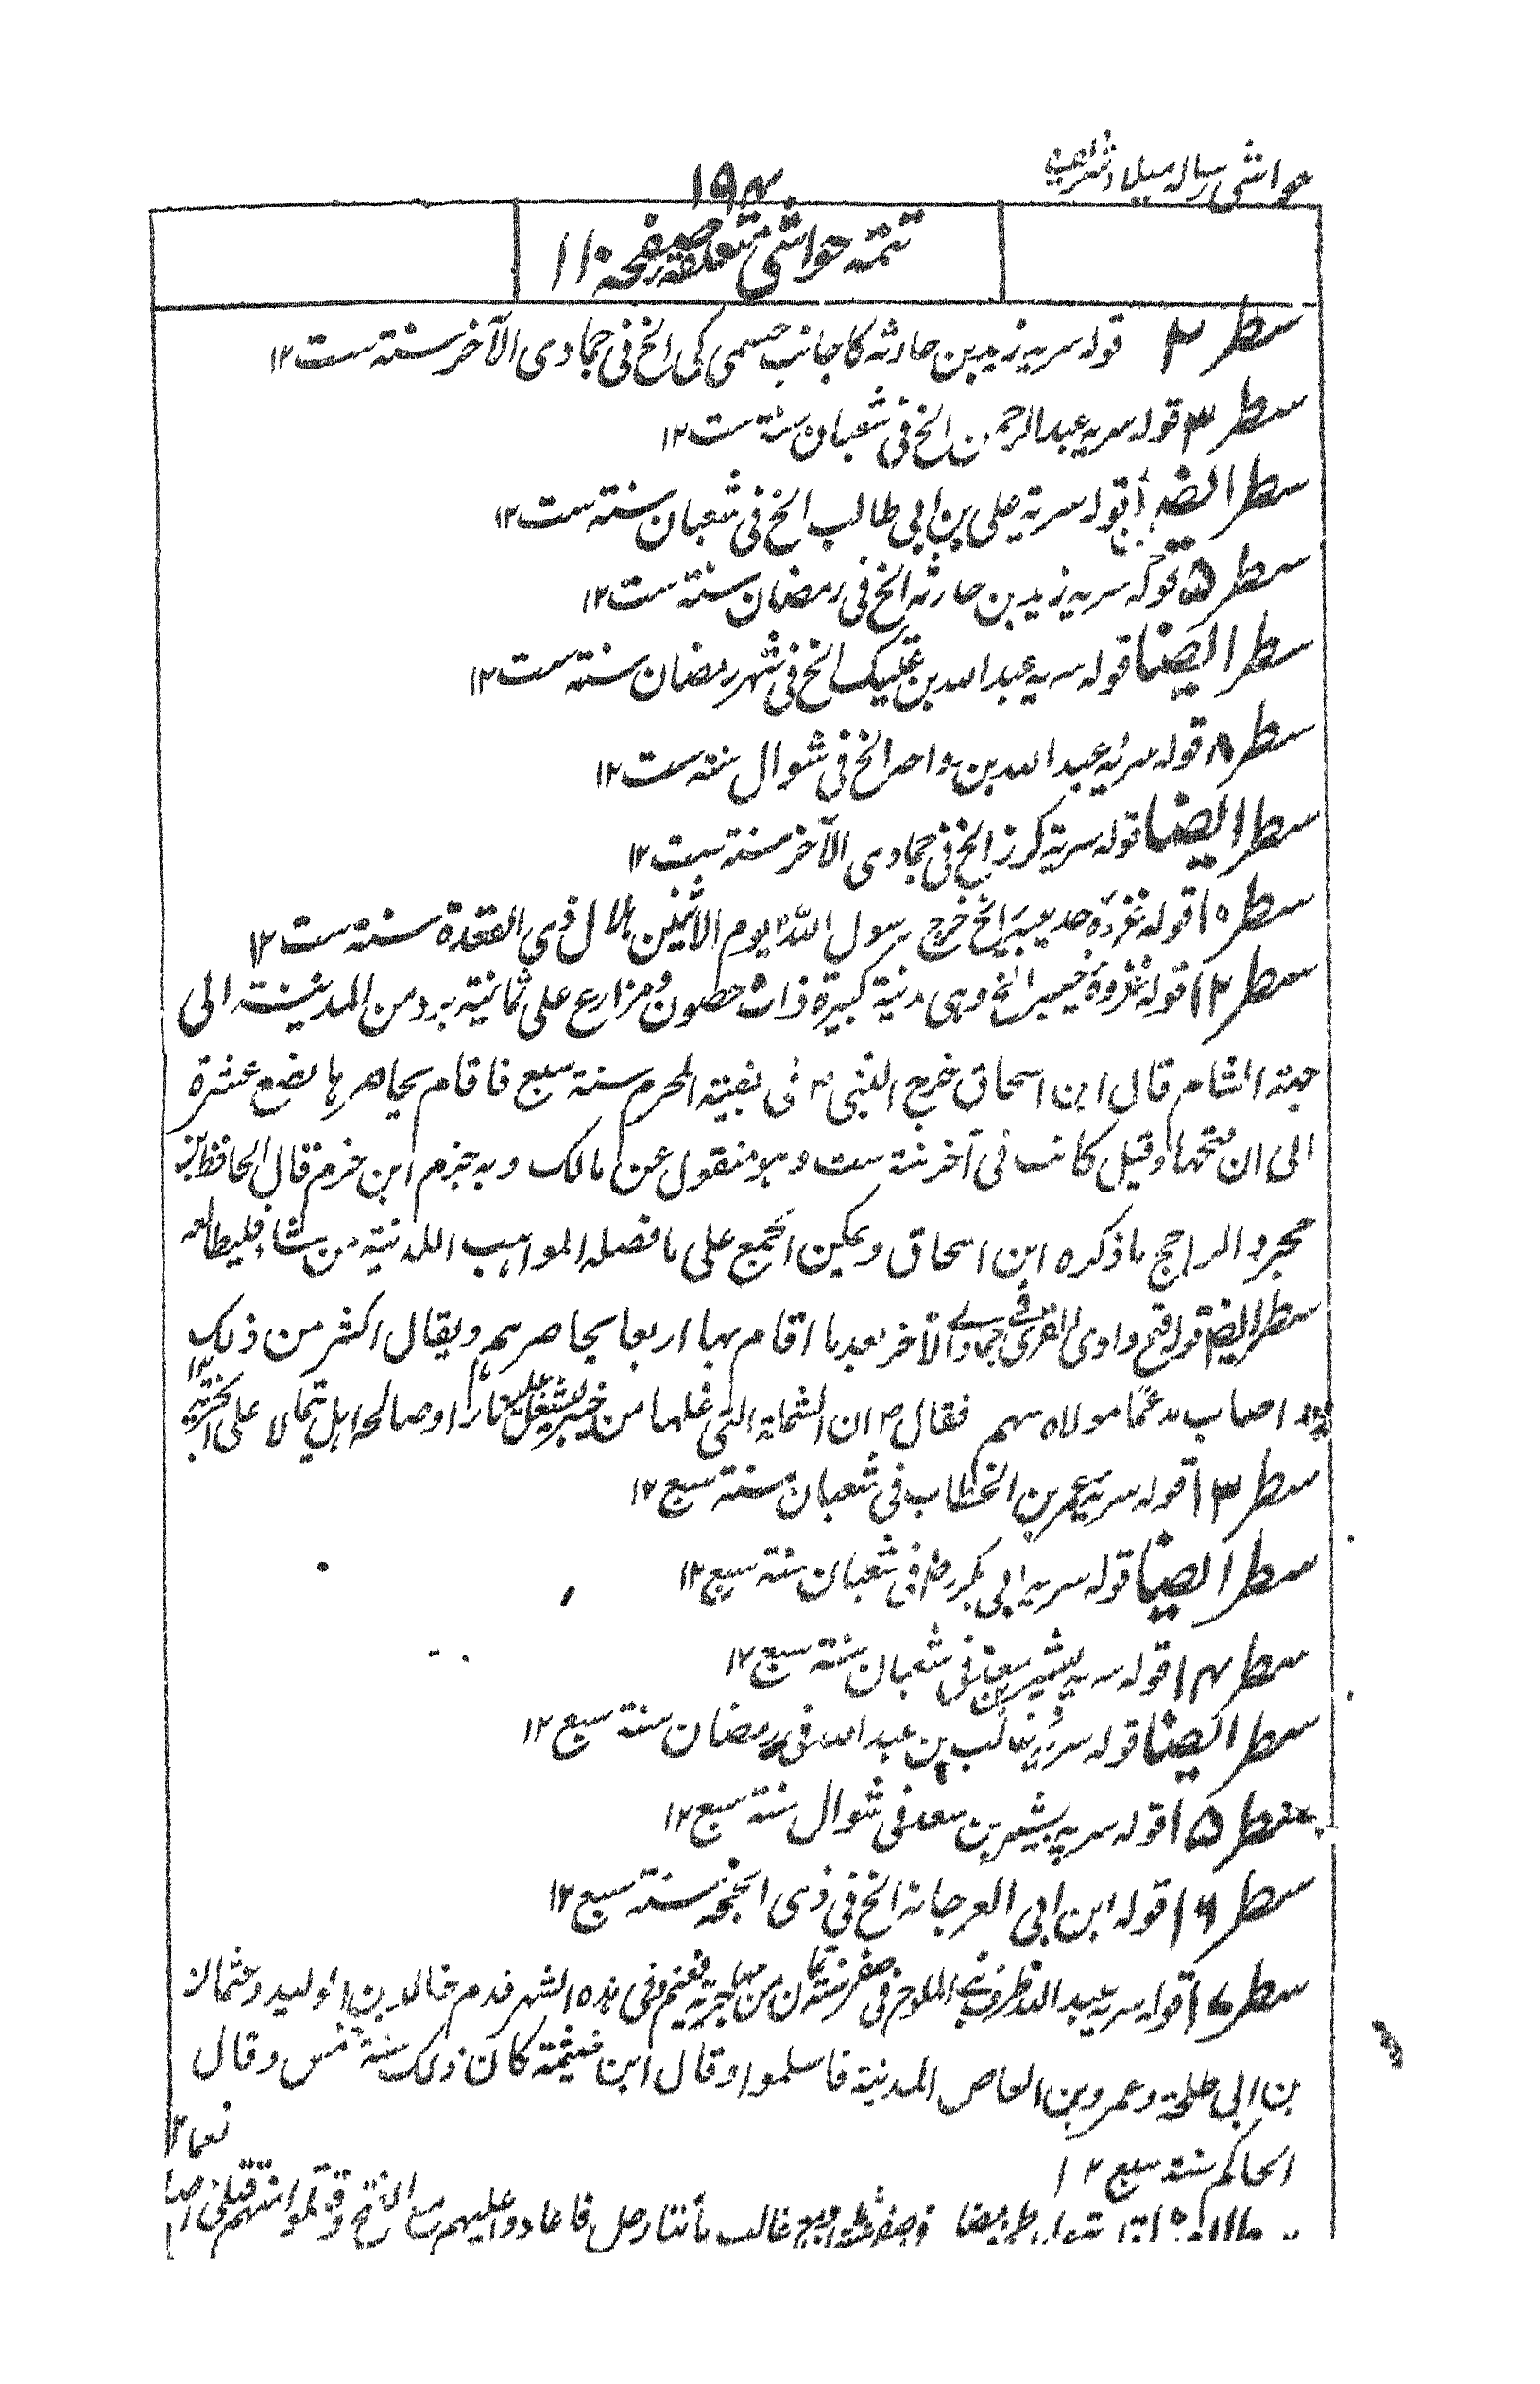 حواشی رسالہ میلاد شریف
۱۹۴
تتمہ حواشی متعلقہ صفحہ ۱۱
سطر ۲ قولہ سریہ زید بن حارثہ کا جانب حسمی کی الخ فی جمادی الآخر سنتہ ست ۱۲
سطر ۳ قولہ سریہ عبدالرحمن الخ فی شعبان سنتہ ست ۱۲
سطر ایضاً قولہ سریۃ علی بن ابی طالب الخ فی شعبان سنتہ ست ۱۲
سطر ۵ قولہ سریہ زید بن حارثہ الخ فی رمضان سنتہ ست ۱۲
سطر ایضا قولہ سریہ عبداللہ بن عتیک الخ فی شہر رمضان سنتہ ست ۱۲
سطر ۸ قولہ سریہ عبداللہ بن رواحہ الخ فی شوال سنتہ ست ۱۲
سطر ایضا قولہ سریۃ کرز الخ فی جمادی الآخر سنتہ ست ۱۲
سطر ۱۰ قولہ غزوہ حدیبیہ الخ خرج رسول اللہ ؐ یوم الاثنین ہلال ذی القعدۃ سنتہ ست ۱۲
سطر ۱۲ قولہ غزوۃ خیبر الخ وہی مدنیۃ کبیرۃ ذات حصون و مزارع علی ثمانیۃ برد من المدینتہ الی
جہتہ الشام قال ابن اسحاق خرج النبی ؐ فی بقیتہ المحرم سنتہ سبع فاقام یحاصرہا بضع عشرۃ
الی ان فتحہا وقیل کانت فی آخر سنتہ ست وہو منقول عن مالک وبہ جزم ابن حزم قال الحافظ بن
حجر والراجح ما ذکرہ ابن اسحاق ویمکن الجمع علی ما فصلہ المواہب اللدنیۃ من شاء فلیطالعہ
سطر ایضا قولہ فتح وادی القری فی جمادی الآخر بعد ما اقام بہا اربعا یحاصرہم ویقال اکثر من ذلک
اصاب مدعما مولاہ سہم فقال ؐ ان الشملۃ التی غلہا من خیبر لتشتعل علیہ نارا وصالحہ اہل تیما علی الجزیۃ ۱۲
سطر ۱۳ قولہ سریۃ عمر بن الخطاب فی شعبان سنتہ سبع ۱۲
سطر ایضا قولہ سریہ ابی بکر رض فی شعبان سنتہ سبع ۱۲
سطر ۱۴ قولہ سریہ بشیر بن سعد فی شعبان سنتہ سبع ۱۲
سطر ایضا قولہ سریۃ غالب بن عبداللہ فی رمضان سنتہ سبع ۱۲
سطر ۱۵ قولہ سریہ بشیر بن سعد فی شوال سنتہ سبع ۱۲
سطر ۱۶ قولہ ابن ابی العرجانہ الخ فی ذی الحجۃ سنتہ سبع ۱۲
سطر ۱۷ قولہ سریہ عبد اللہ بنی الملوح فی صفر سنتہ ثمان من مہاجرتہ فغنم وفی ہذہ الشہر قدم خالد بن الولید وعثمان
بن ابی طلحۃ وعمرو بن العاص المدنیۃ فاسلموا وقال ابن خیثمۃ کان ذلک سنتہ خمس وقال
الحاکم سنتہ سبع ۱۲
ایضا فی صفر غالب مأتا رجل فاعادوا علیہم مع الفتح وقتلوا منہم قتلی